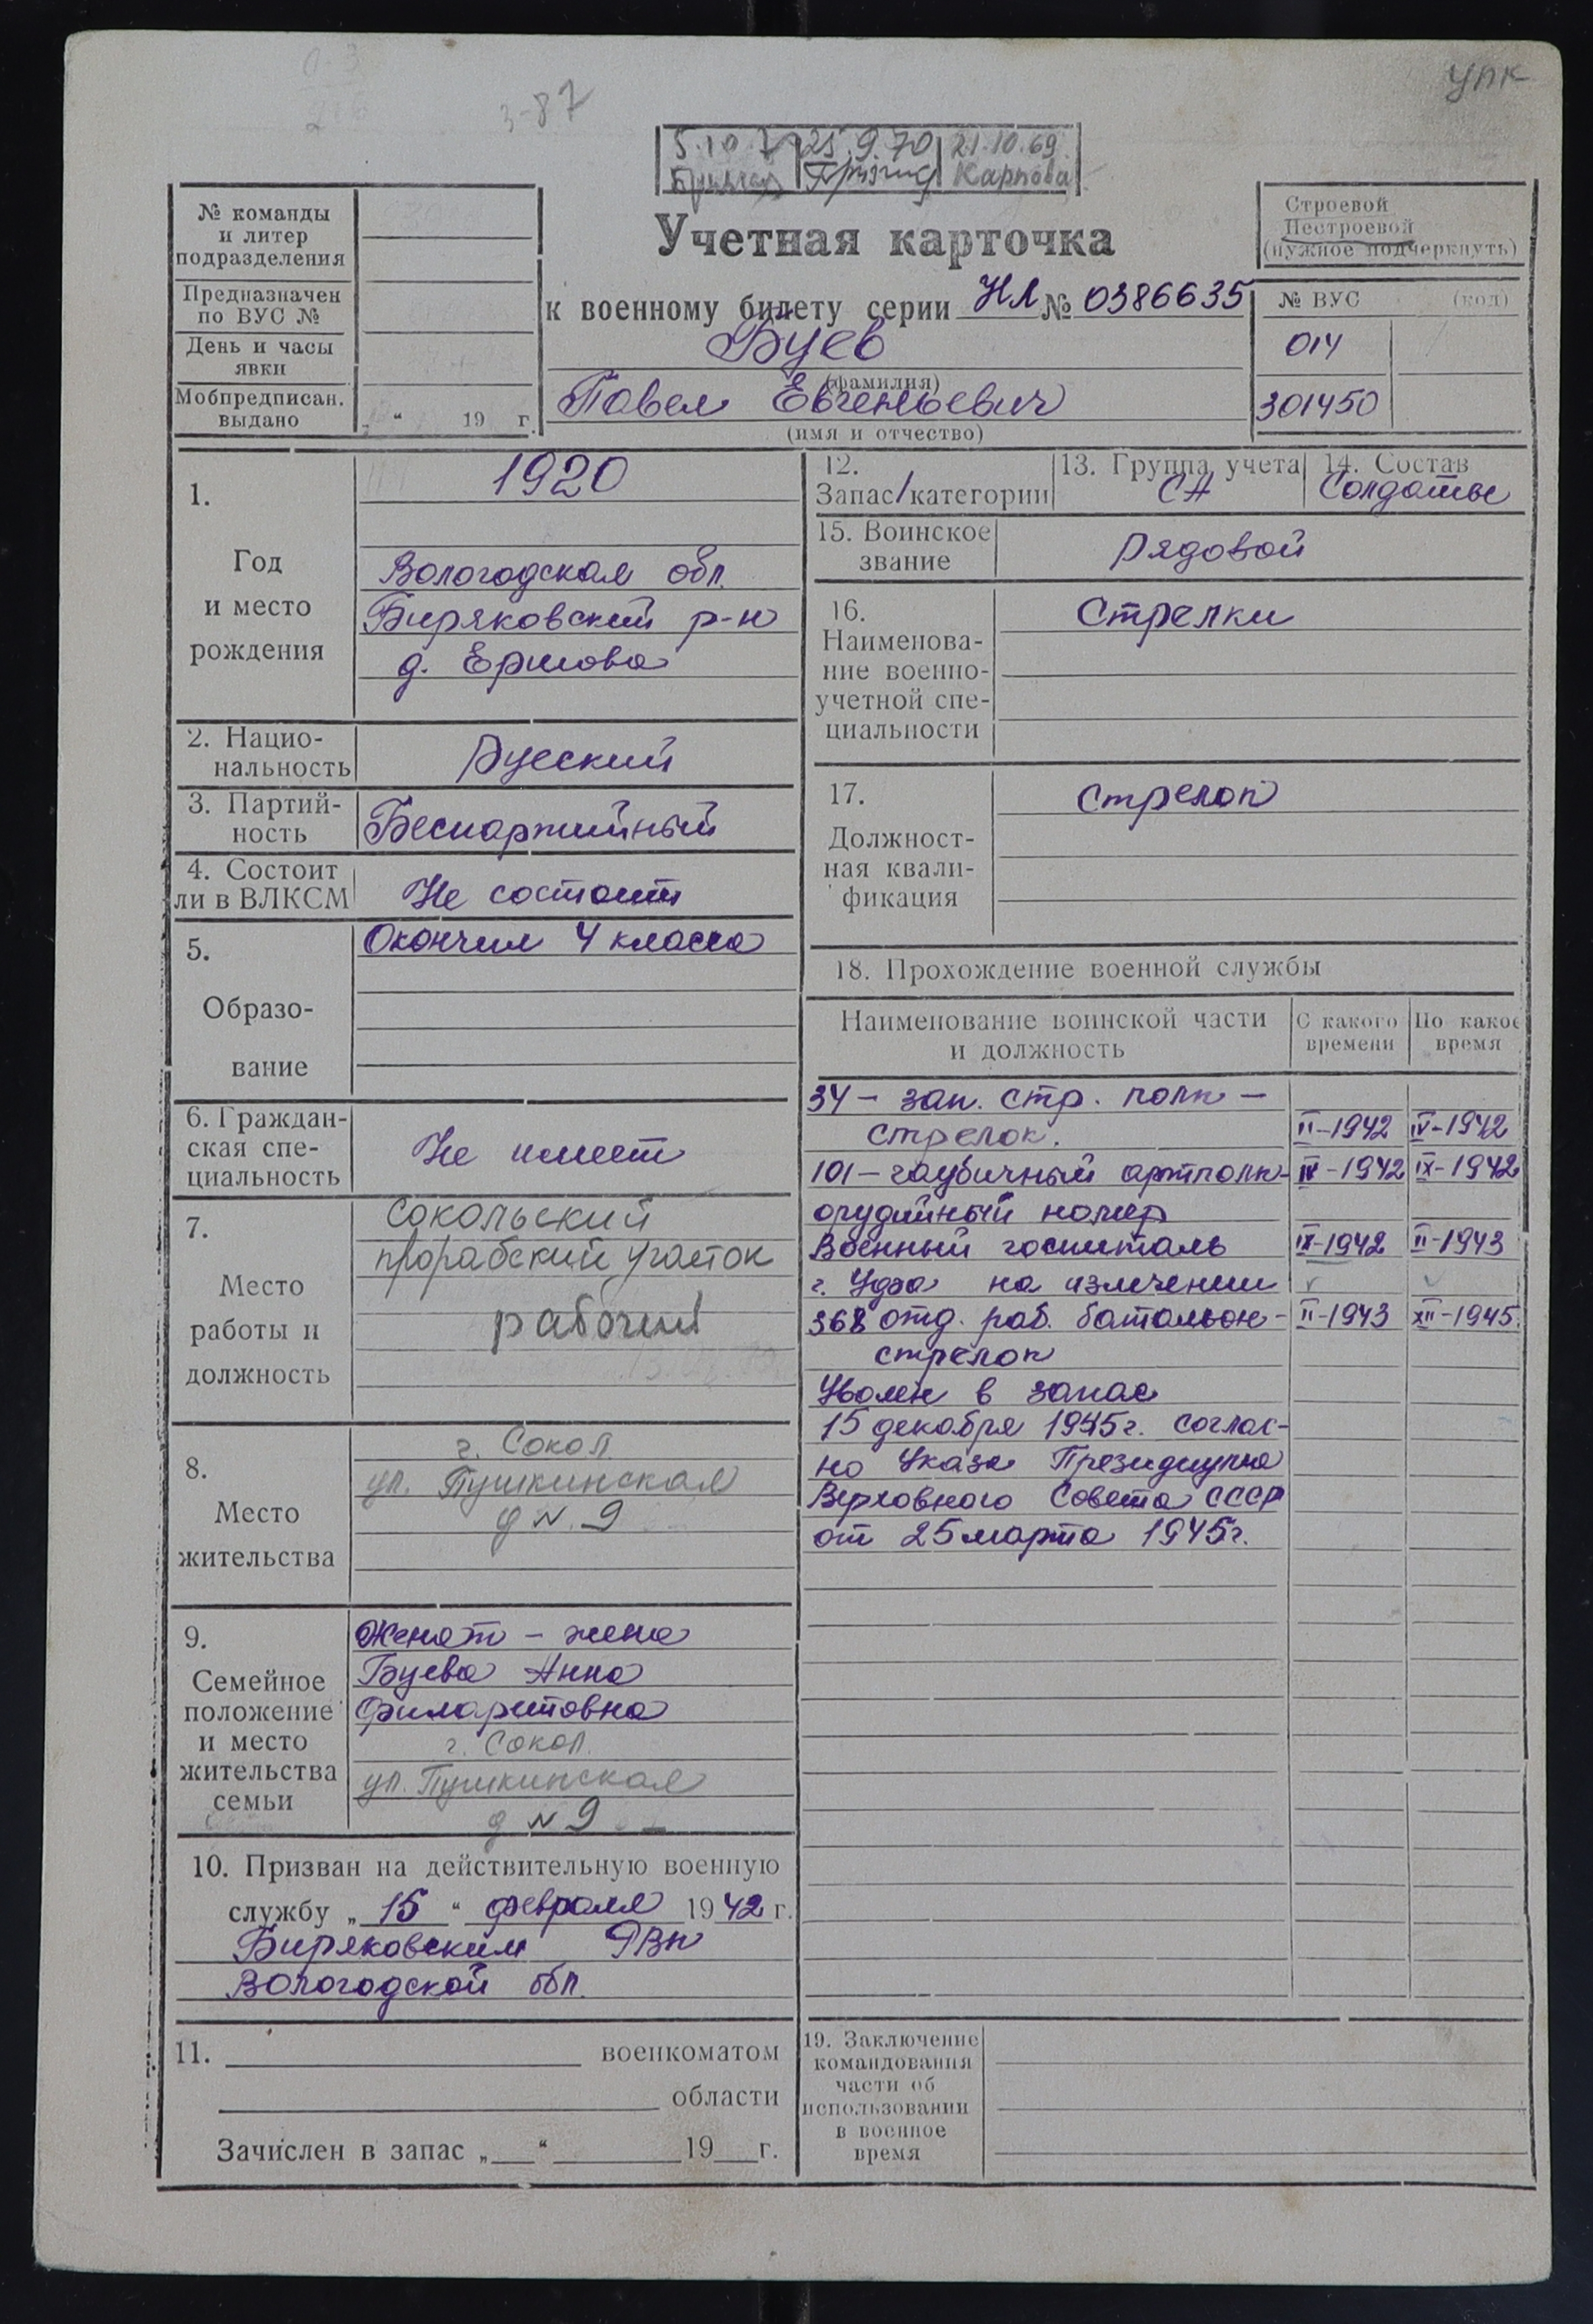 упк
3-87
25.9.70 21.10.69
Карпова
№ команды
и литер
подразделения
Предназначен
по ВУС №
День и часы
явки
Мобпредписан.
выдано
„ “ 19 г.
Учетная карточка
к военному билету серии НЛ № 0386635
Буев
(фамилия)
Павел Евгеньевич
(имя и отчество)
Строевой
Нестроевой
(нужное подчеркнуть)
№ ВУС (код)
014
301450
1.
Год
и место
рождения
1920
Вологодская обл.
Биряковский р-н
д. Ершова
2. Нацио-
нальность
Русский
3. Партий-
ность
Беспартийный
4. Состоит
ли в ВЛКСМ
Не состоит
5.
Образо-
вание
Окончил 4 класса
6. Граждан-
ская спе-
циальность
Не имеет
7.
Место
работы и
должность
Сокольский
прорабский участок
рабочий
8.
Место
жительства
г. Сокол
ул. Пушкинская
д N. 9
9.
Семейное
положение
и место
жительства
семьи
Женат – жена
Буева Анна
Филаретовна
г. Сокол.
ул. Пушкинская
д N 9
10. Призван на действительную военную
службу „ 15 “ февраля 1942 г.
Биряковским РВК
Вологодской обл.
11. военкоматом
области
Зачислен в запас „ “ 19 г.
12.
Запас/категории
13. Группа учета
СА
14. Состав
Солдаты
15. Воинское
звание
Рядовой
16.
Наименова-
ние военно-
учетной спе-
циальности
Стрелки
17.
Должност-
ная квали-
фикация
Стрелок
18. Прохождение военной службы
Наименование воинской части
и должность
С какого
времени
По какое
время
34 – зап. стр. полк –
стрелок. II-1942 IV-1942
101 – гаубичный артполк- IV-1942 IX-1942
орудийный номер
Военный госпиталь IX-1942 II-1943
г. Уфа на излечении
368 отд. раб. батальон- II-1943 XII-1945.
стрелок
Уволен в запас
15 декабря 1945г. соглас-
но Указа Президиума
Верховного Совета СССР
от 25 марта 1945г.
19. Заключение
командования
части об
использовании
в военное
время